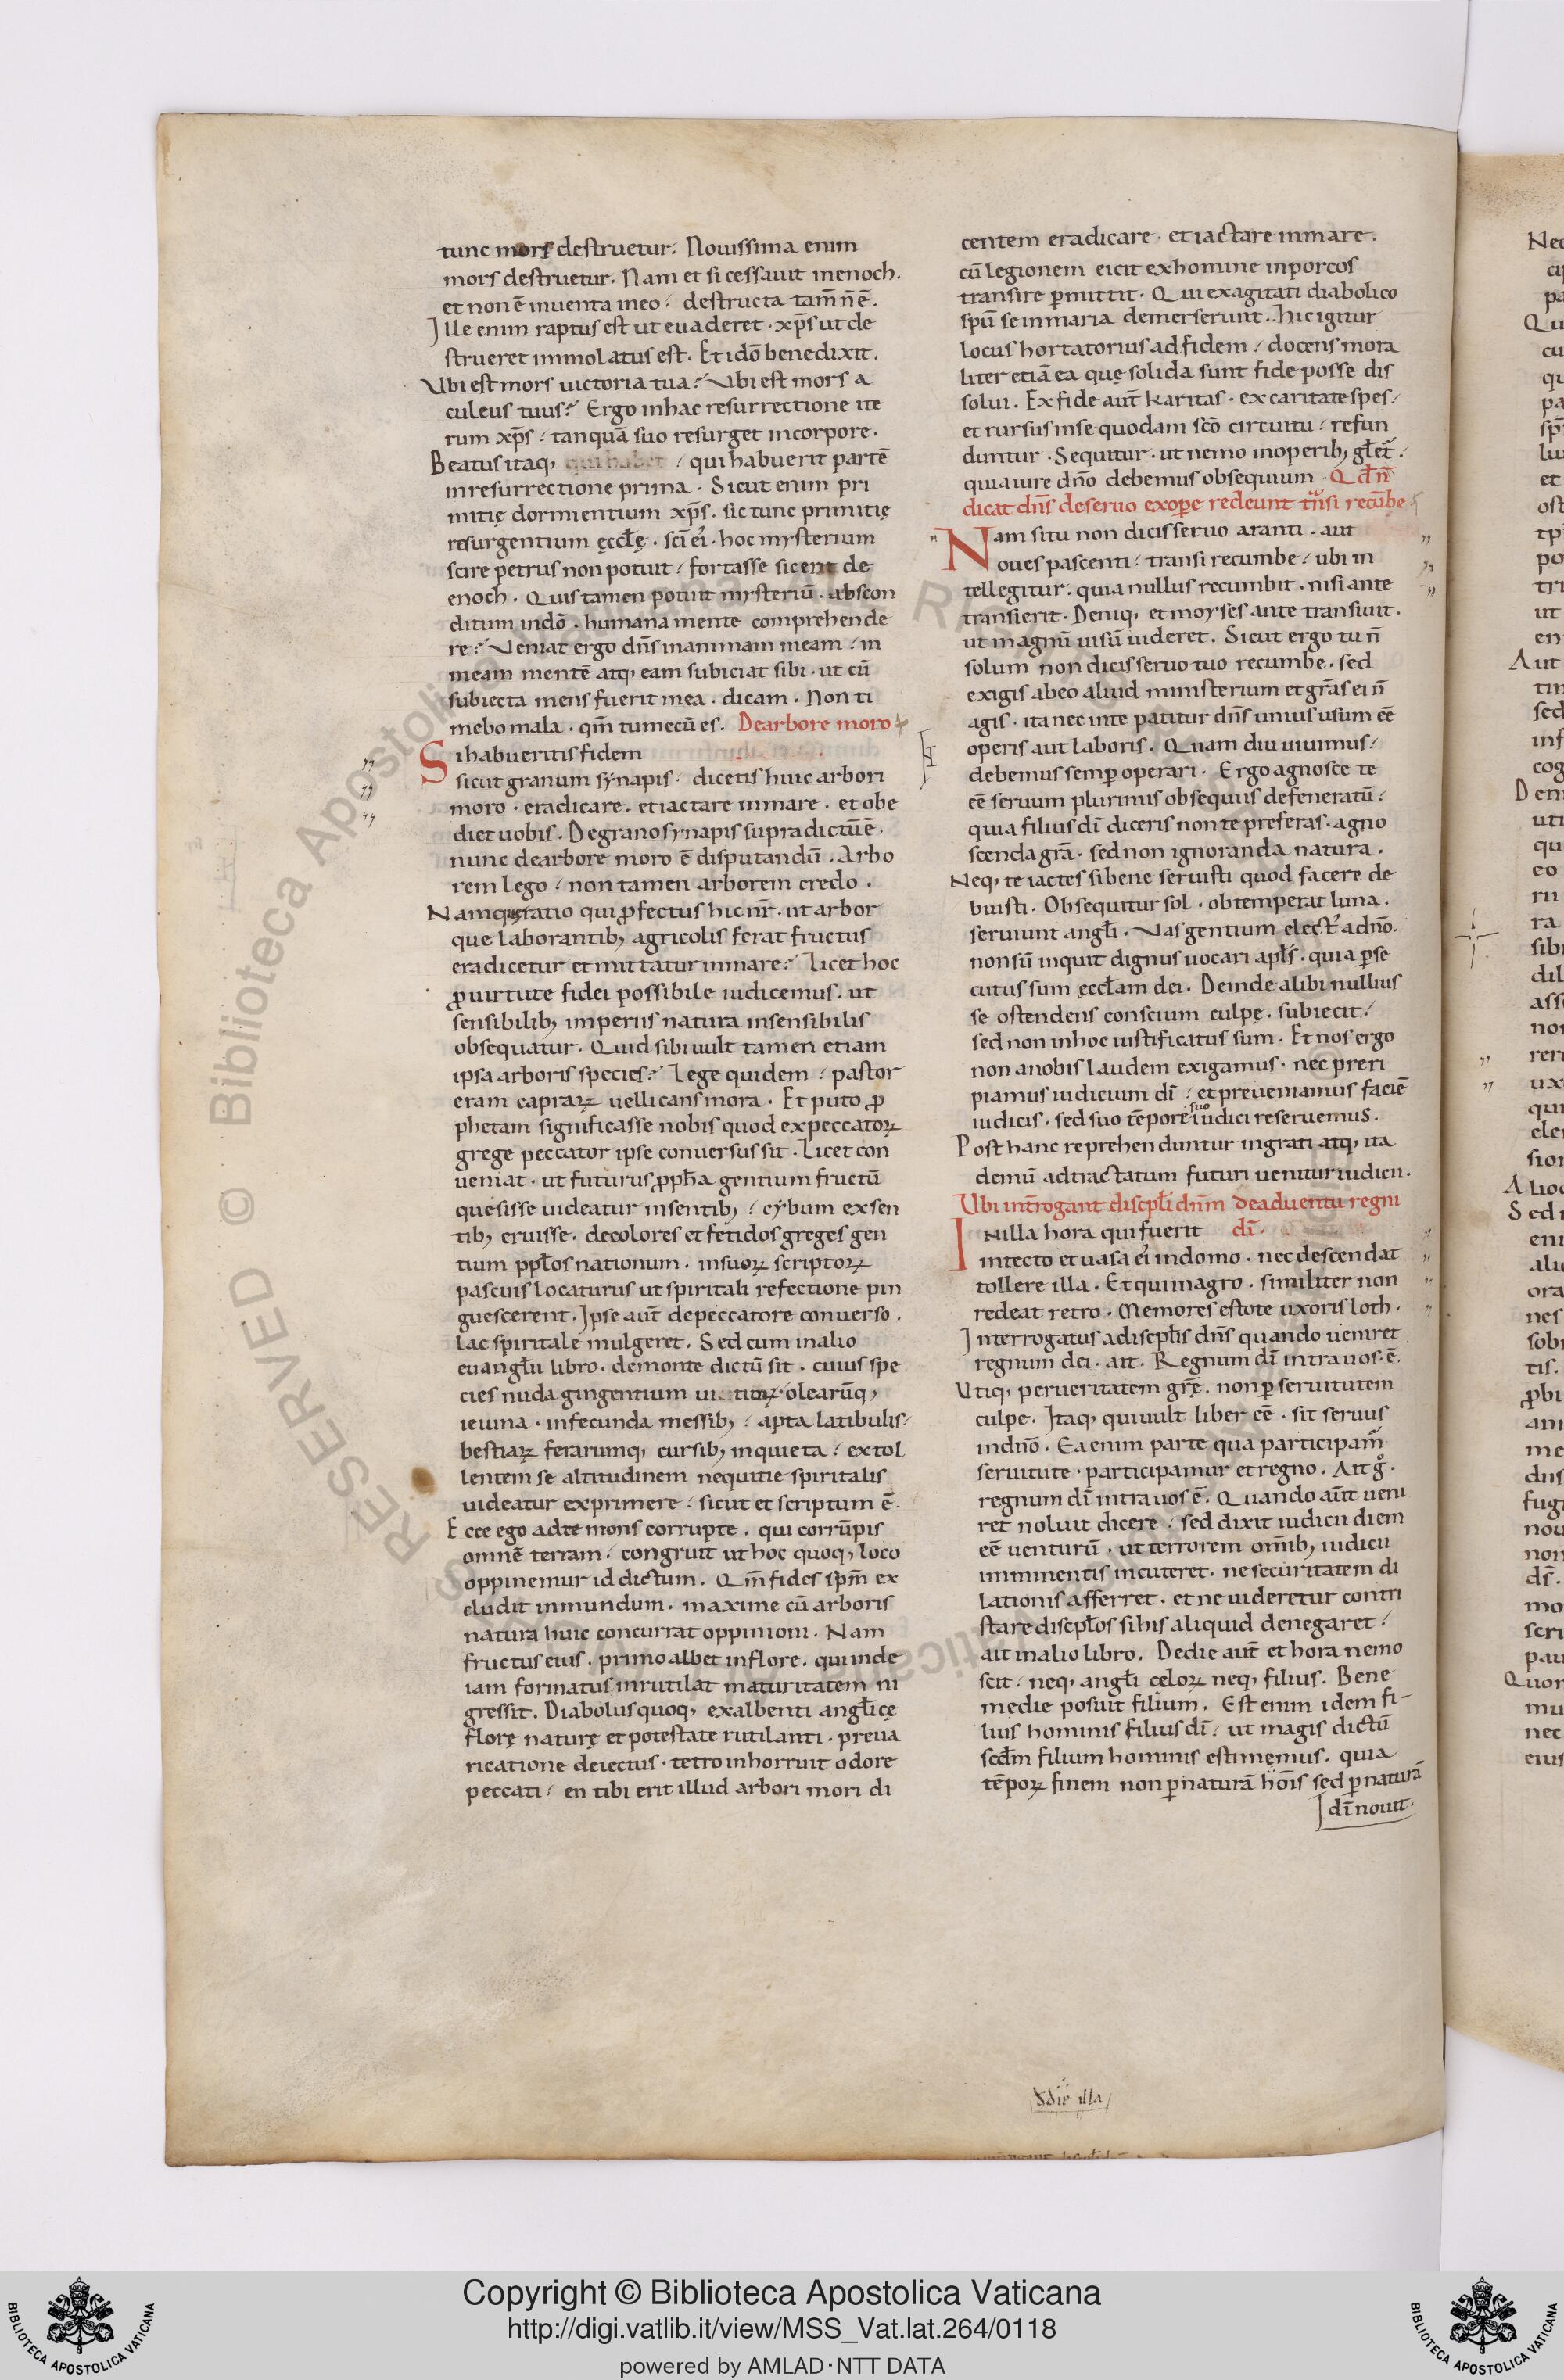 tunc mors destruetur. Nouissima enim
mors destruetur. Nam et si cessauit in enoch.
et non ē inuenta in eo; destructa tam̄ n̄ ē.
Ille enim raptus est ut euaderet. xp̄s ut de
strueret immolatus est. Et idō benedixit.
Vbi est mors uictoria tua? Vbi est mors a
culeus tuus? Ergo in hac resurrectione ite
rum xp̄s; tanquā suo resurget in corpore.
Beatus itaq; qui habet; qui habuerit partē
in resurrectione prima. Sicut enim pri
mitię dormientium xp̄s. sic tunc primitię
resurgentium ęccłę. sc̄i ei'. hoc mysterium
scire petrus non potuit; fortasse sicent de
enoch. Quis tamen potuit mysteriū. abscon
ditum in dō. humana mente comprehende
re? Veniat ergo dn̄s in animam meam; in
meam mentē atq; eam subiciat sibi. ut cū
subiecta mens fuerit mea. dicam. Non ti
mebo mala. qm̄ tu mecū es. De arbore moro
Si habueritis fidem
sicut granum synapis; dicetis huic arbori
moro. eradicare. et iactare in mare. et obe
diet uobis. De grano synapis supra dictū ē.
nunc de arbore moro ē disputandū. Arbo
rem lego; non tamen arborem credo.
Nam quę ratio qui ꝓfectus hic nr̄. ut arbor
que laborantib; agricolis ferat fructus
eradicetur et mittatur in mare? Licet hoc
ꝓ uirtute fidei possibile iudicemus. ut
sensibilib; imperiis natura insensibilis
obsequatur. Quid sibi uult tamen etiam
ipsa arboris species? Lege quidem; pastor
eram caprarꝝ uellicans mora. Et puto ꝓ
phetam significasse nobis quod ex peccatorꝝ
grege peccator ipse conuersus sit. Licet con
ueniat. ut futurus ꝓph̄a gentium fructū
quesisse uideatur in sentib;; cybum ex sen
tib; eruisse. decolores et fetidos greges gen
tium ppl̄os nationum. in suorꝝ scriptorꝝ
pascuis locaturus ut spiritali refectione pin
guescerent. Ipse aut̄ de peccatore conuerso.
lac spiritale mulgeret. Sed cum in alio
euangl̄ii libro. de monte dictū sit. cuius spe
cies nuda gingentium olearūq;
ieiuna. infecunda messib;; apta latibulis;
bestiarꝝ ferarumq; cursib; inquieta; extol
lentem se altitudinem nequitie spiritalis
uideatur exprimere; sicut et scriptum ē.
Ecce ego ad te mons corrupte. qui corrūpis
omnē terram; congruit ut hoc quoq; loco
oppinemur id dictum. Qm̄ fides spm̄ ex
cludit inmundum. maxime cū arboris
natura huic concurrat oppinioni. Nam
fructus eius. primo albet in flore. qui inde
iam formatus inrutilat maturitatem ni
gressit. Diabolus quoq; exalbenti angl̄icę
florę naturę et potestate rutilanti. preua
ricatione deiectus. tetro inhorruit odore
peccati; en tibi erit illud arbori mori di
centem eradicare. et iactare in mare.
cū legionem eicit ex homine in porcos
transire ꝑmittit. Qui exagitati diabolico
spū se in maria demerserunt. hic igitur
locus hortatorius ad fidem; docens mora
liter etiā ea quę solida sunt fide posse dis
solui. Ex fide aut̄ karitas. ex caritate spes;
et rursus in se quodam sc̄o circuitu; refun
duntur. Sequitur. ut nemo in operib; gl̄et̄.
quia iure dn̄o debemus obsequium. Qd̄ n̄
dicat dn̄s de seruo ex oꝑe redeunt tn̄si recūbe
Nam si tu non dicis seruo aranti. aut
oues pascenti; transi recumbe; ubi in
tellegitur. quia nullus recumbit. nisi ante
transierit. Deniq; et moyses ante transiuit.
ut magnū uisū uideret. Sicut ergo tu n̄
solum non dicis seruo tuo recumbe. sed
exigis ab eo aliud ministerium et gr̄as ei n̄
agis. ita nec in te patitur dn̄s unius usum eē
operis aut laboris. Quam diu uiuimus;
debemus semꝑ operari. Ergo agnosce te
eē seruum plurimis obsequiis defeneratū;
quia filius dī diceris non te preferas. agno
scenda gr̄a. sed non ignoranda natura.
Neq; te iactes si bene seruisti quod facere de
buisti. Obsequitur sol. obtemperat luna.
seruiunt angl̄i. Vas gentium elect' a dn̄o.
non sū inquit dignus uocari apl̄s. quia ꝑse
cutus sum ęccl̄am dei. Deinde alibi nullius
se ostendens conscium culpę. subiecit;
sed non in hoc iustificatus sum. Et nos ergo
non a nobis laudem exigamus. nec preri
piamus iudicium dī; et preueniamus faciē
iudicis. sed suo tēpore suo iudici reseruemus.
Post hanc reprehenduntur ingrati atq; ita
demū ad tractatum futuri uenitur iudicii.
Vbi int̄rogant discpl̄i dn̄m de aduentu regni
In illa hora qui fuerit dī.
in tecto et uasa ei' in domo. nec descendat
tollere illa. Et qui in agro. similiter non
redeat retro. Memores estote uxoris loth.
Interrogatus a discpl̄is dn̄s quando ueniret
regnum dei. ait. Regnum dī intra uos ē.
Vtiq; per ueritatem gr̄ę. non ꝑ seruitutem
culpe. Itaq; qui uult liber eē. sit seruus
in dn̄o. Ea enim parte qua participam̄
seruitute. participamur et regno. Ait gͦ.
regnum dī intra uos ē. Quando aūt ueni
ret noluit dicere; sed dixit iudicii diem
eē uenturū. ut terrorem om̄ib; iudicii
imminentis incuteret. ne securitatem di
lationis afferret. et ne uideretur contri
stare discpl̄os si his aliquid denegaret;
ait in alio libro. De die aut̄ et hora nemo
scit; neq; angl̄i celorꝝ neq; filius. Bene
medie posuit filium. Est enim idem fi-
lius hominis filius dī; ut magis dictū
scd̄m filium hominis estimemus. quia
tēporꝝ finem non ꝑ naturā hōis sed ꝑ naturā
dī nouit.
illa
Copyright © Biblioteca Apostolica Vaticana
http://digi.vatlib.it/view/MSS_Vat.lat.264/0118
powered by AMLAD·NTT DATA
BIBLIOTECA APOSTOLICA VATICANA
BIBLIOTECA APOSTOLICA VATICANA